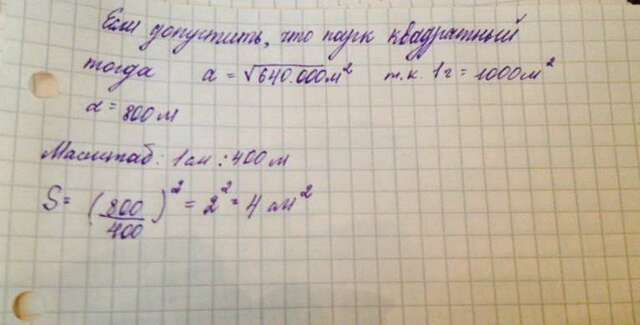 Если допустить, что парк квадратный
тогда a = √640.000 м² т.к. 1г = 1000 м²
a = 800 м
Масштаб: 1 см : 400 м
S = (800/400)² = 2² = 4 см²